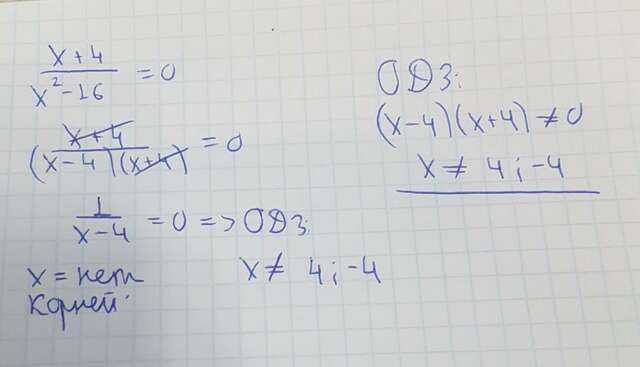 x+4/x²-16 = 0
x+4/(x-4)(x+4) = 0
1/x-4 = 0 => ОДЗ:
x = нет
корней.
x ≠ 4; -4
ОДЗ:
(x-4)(x+4) ≠ 0
x ≠ 4; -4